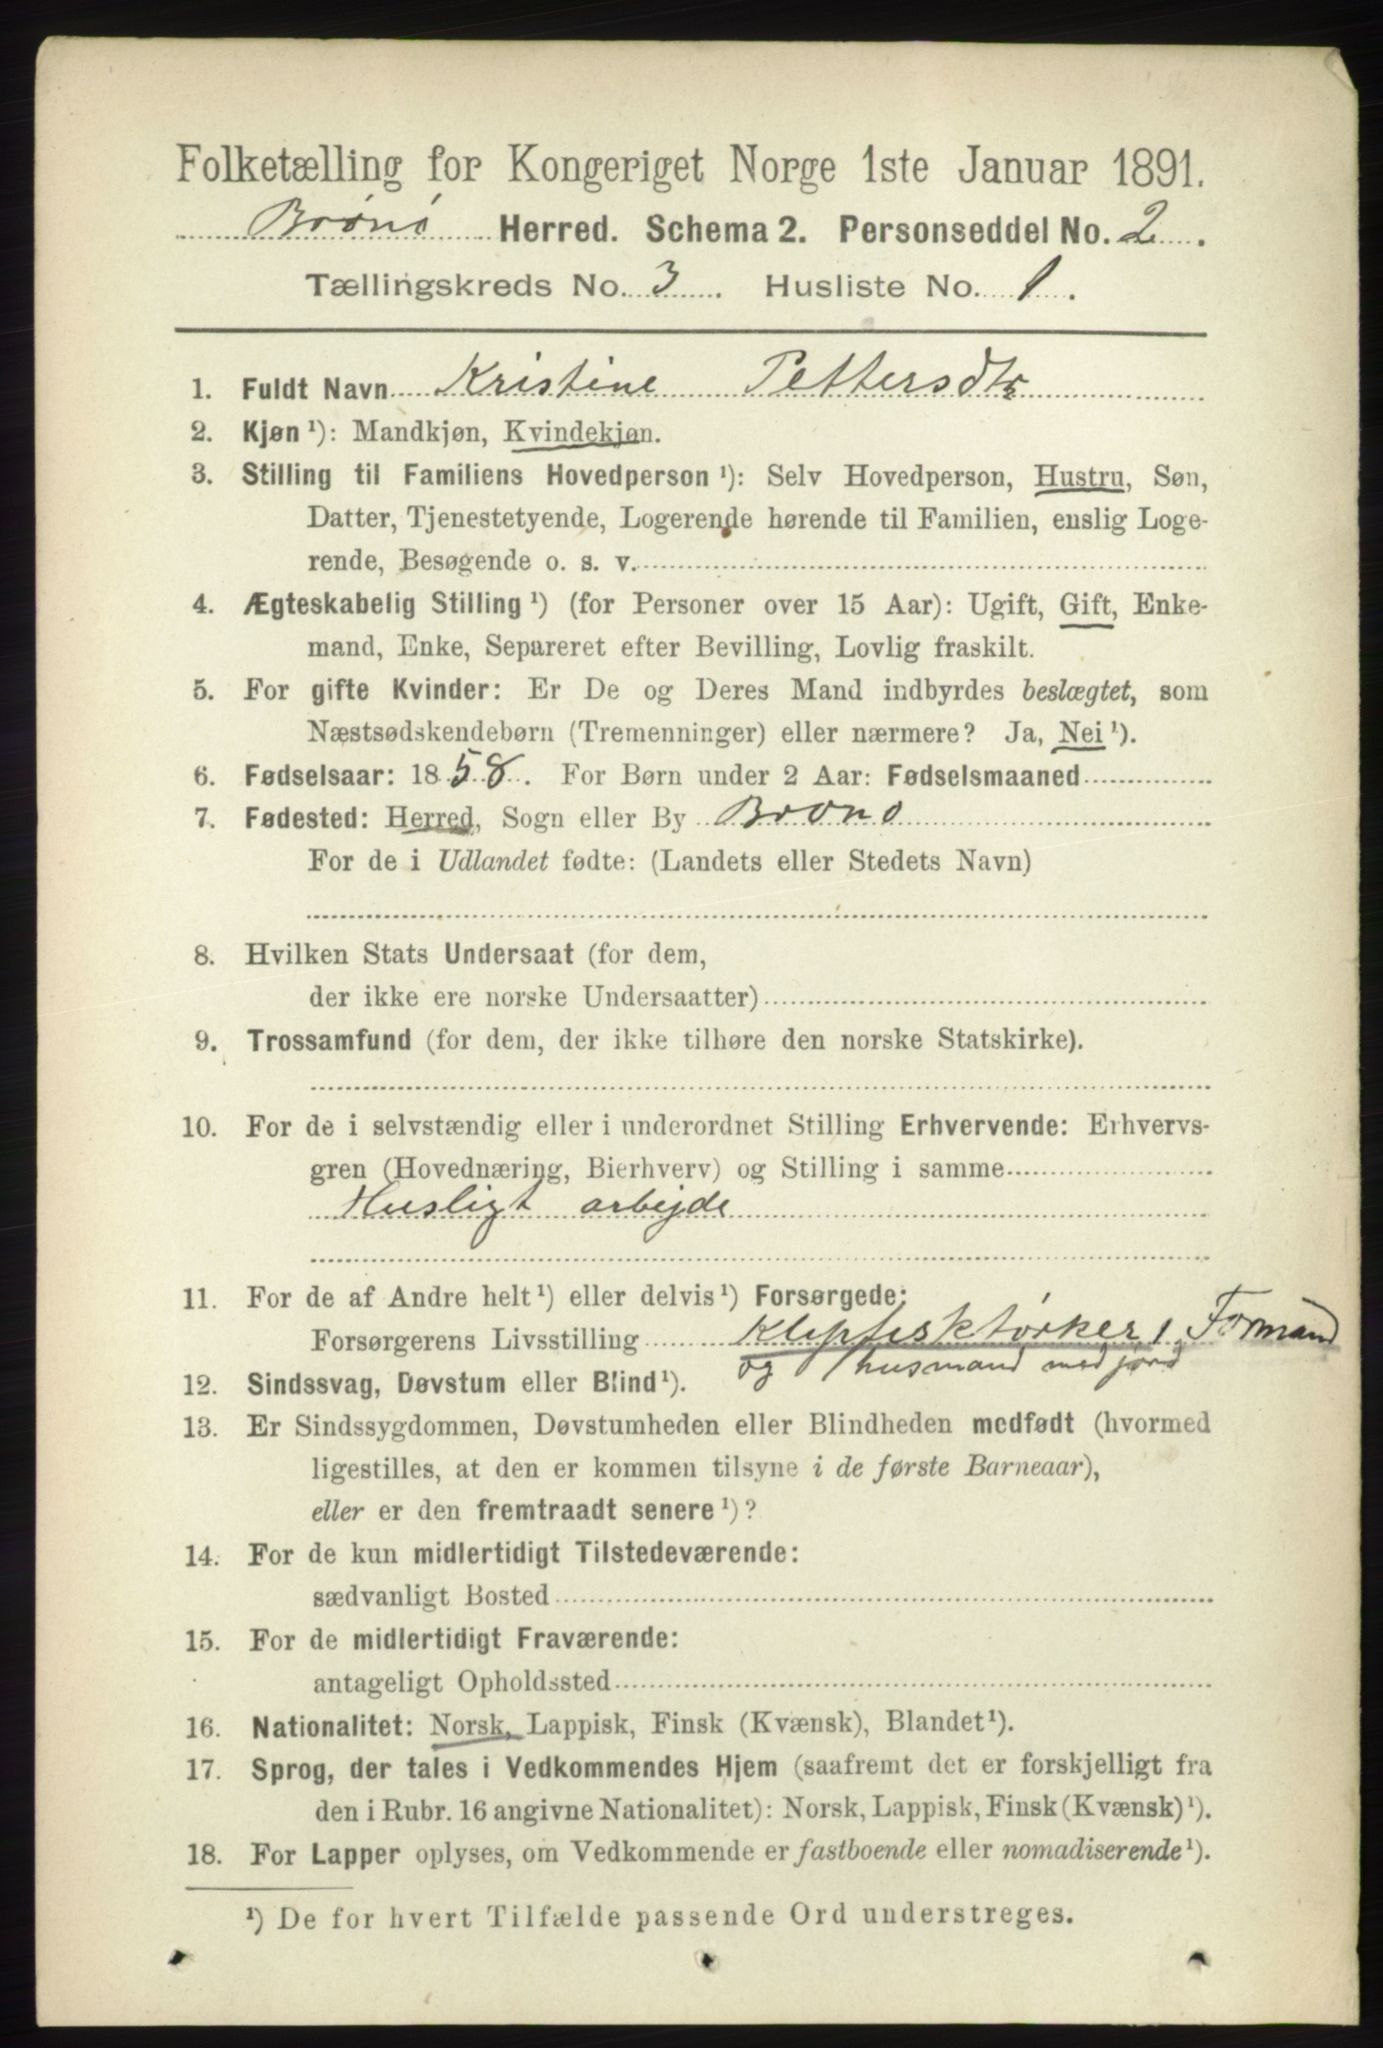 Folketælling for Kongeriget Norge 1ste Januar 1891.
Brønø Herred. Schema 2. Personseddel No. 2.
Tællingskreds No. 3. Husliste No. 1.
1. Fuldt Navn Kristine Pettersdtr
2. Kjøn ¹): Mandkjøn, Kvindekjøn.
3. Stilling til Familiens Hovedperson ¹): Selv Hovedperson, Hustru, Søn,
Datter, Tjenestetyende, Logerende hørende til Familien, enslig Loge-
rende, Besøgende o. s. v.
4. Ægteskabelig Stilling ¹) (for Personer over 15 Aar): Ugift, Gift, Enke-
mand, Enke, Separeret efter Bevilling, Lovlig fraskilt.
5. For gifte Kvinder: Er De og Deres Mand indbyrdes beslægtet, som
Næstsødskendebørn (Tremenninger) eller nærmere? Ja, Nei ¹).
6. Fødselsaar: 1858. For Børn under 2 Aar: Fødselsmaaned
7. Fødested: Herred, Sogn eller By Brønø
For de i Udlandet fødte: (Landets eller Stedets Navn)
8. Hvilken Stats Undersaat (for dem,
der ikke ere norske Undersaatter)
9. Trossamfund (for dem, der ikke tilhøre den norske Statskirke).
10. For de i selvstændig eller i underordnet Stilling Erhvervende: Erhvervs-
gren (Hovednæring, Bierhverv) og Stilling i samme
Husligt arbejde
11. For de af Andre helt ¹) eller delvis ¹) Forsørgede:
Forsørgerens Livsstilling Klipfisktørker, Formand
og husmand med jord
12. Sindssvag, Døvstum eller Blind ¹).
13. Er Sindssygdommen, Døvstumheden eller Blindheden medfødt (hvormed
ligestilles, at den er kommen tilsyne i de første Barneaar),
eller er den fremtraadt senere ¹)?
14. For de kun midlertidigt Tilstedeværende:
sædvanligt Bosted
15. For de midlertidigt Fraværende:
antageligt Opholdssted
16. Nationalitet: Norsk, Lappisk, Finsk (Kvænsk), Blandet ¹).
17. Sprog, der tales i Vedkommendes Hjem (saafremt det er forskjelligt fra
den i Rubr. 16 angivne Nationalitet): Norsk, Lappisk, Finsk (Kvænsk) ¹).
18. For Lapper oplyses, om Vedkommende er fastboende eller nomadiserende ¹).
¹) De for hvert Tilfælde passende Ord understreges.